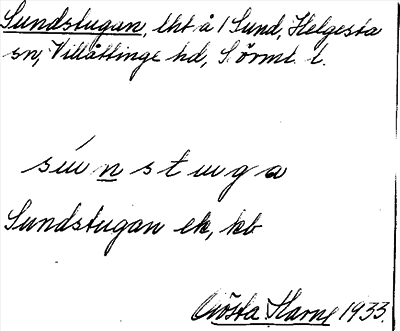 Sundstugan, lht å 1 Sund, Helgesta
sn, Villåttinge hd, S. örml. l.
súnstuga
Sundstugan ek, kb
Gösta Harne 1933.